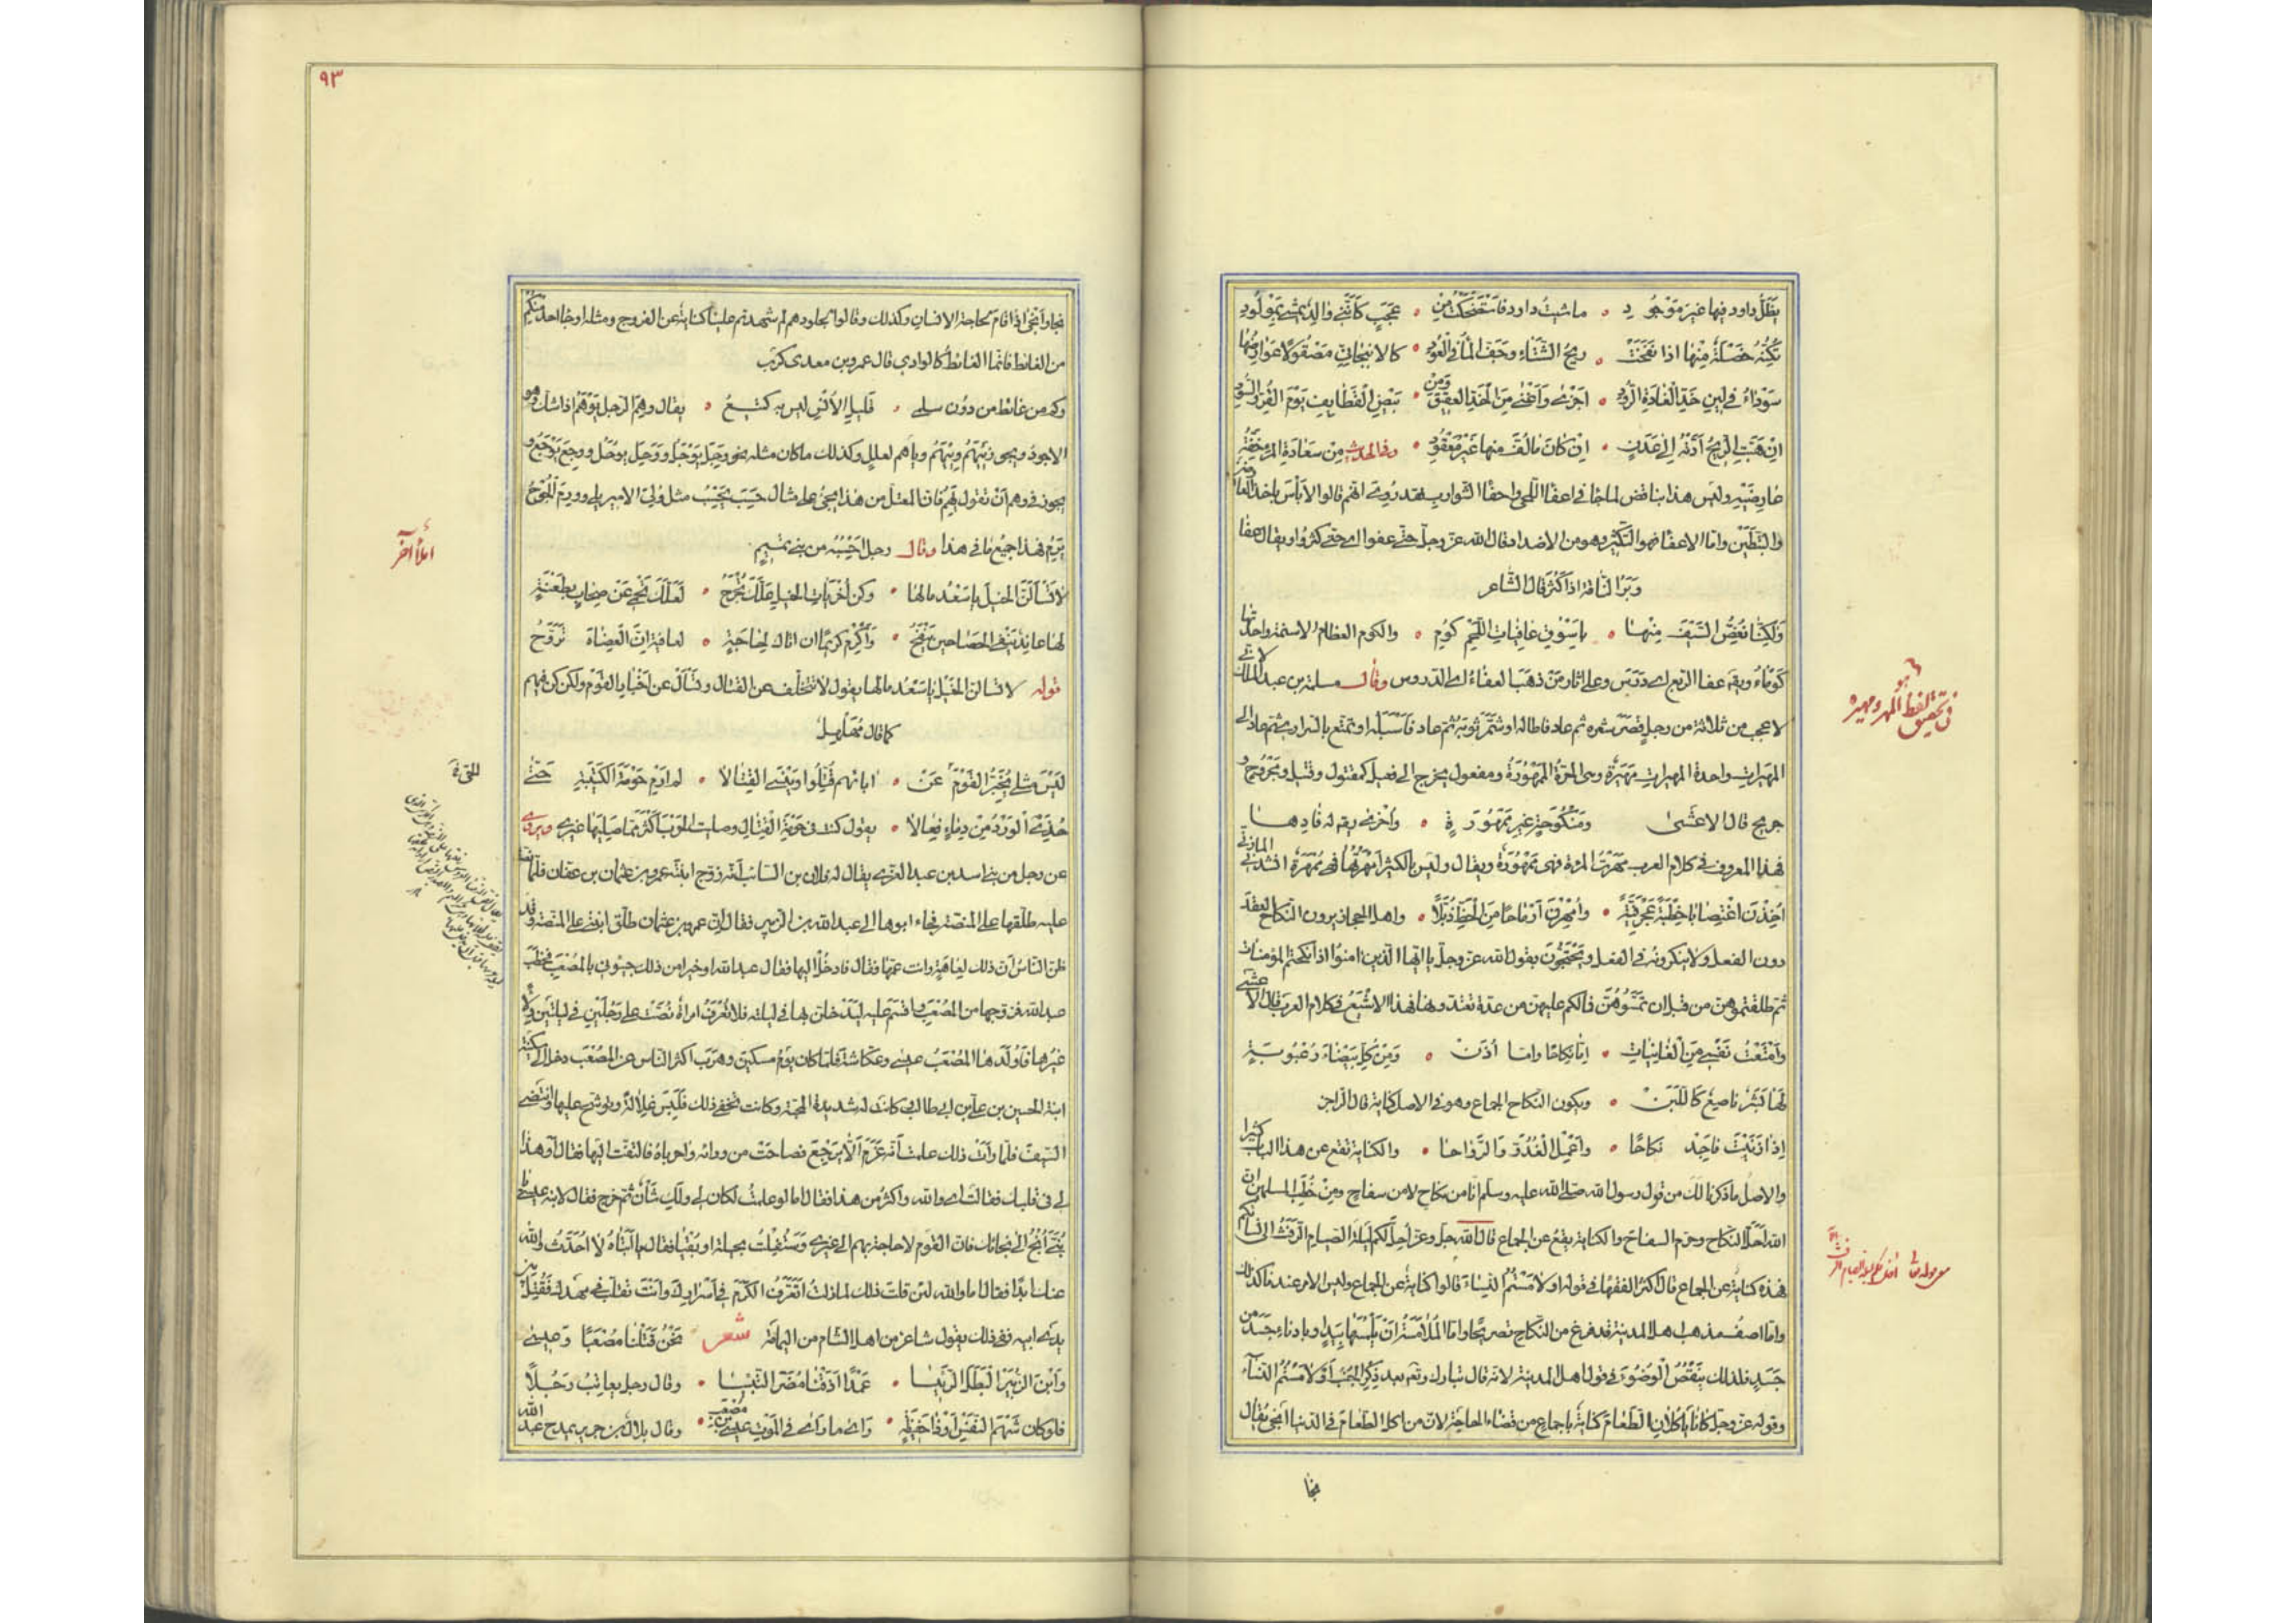 يَظَلُّ داود فيها غيرَ مَوْجُودِ ۰ ما شِئتُ داود فاستَضحَكتُ مِن ۰ عَجَبٍ كَأنّني والِدٌ يمشي بمَوْلُودِ
خَصْلَةٌ مِنْهَا اذا نفَحَتْ ۰ ريحُ الشِّتَاءِ وجَفَّ المآءُ في العُودِ ۰ كالانبجانيّ مَصْقُولًا عَوَارِضُها
سَوْدَاءُ في لينِ خَدِّ الغَادَةِ الرُّودِ ۰ اَجْزىٰ وَاَغْنٰى مِنَ الخَزِّ العَتيقِ وَمِنْ ۰ بيضِ القَطَايِفِ يَوْمَ القُرِّ والسُّودِ
اِنْ هَبَّتِ الريحُ أدَّتْهُ اِلىٰ عَدَنٍ ۰ اِنْ كانَ مالَفَّ منها غيْرَ مَعْقُودِ ۰ وفي الحديث مِنْ سَعادَةِ المرءِ خِفَّةُ
عَارِضَيْهِ وليس هذا بناقض لما جَاء في اعفَاء اللّحى واحفاء الشّوارب فقد رُوى انّهم قالوا لا بأس باخذ العارضين
والتبَطين وامّا الاعفاء فهو التّكثير وهو من الاضداد قال الله عزّ وجلّ حتّى عفوا اى حتى كثرُوا ويقال عفا
وَبَرُ النّاقة اذا كثُرَ قال الشّاعر
وَلكنّا نُعِضُّ السَّيْفَ مِنْهَا ۰ بِاَسْوُقِ عَافِيَاتِ اللَّحْمِ كُومِ ۰ والكوم العظامُ الاسنمة واحدتها
كَوْمَاءُ ويقال عفا الربع اى دَرَسَ وعلى اثار مَنْ ذهَبَ العفاءُ اى الدروس وقال مسلمة بن عبد الملك
لا عجب من ثلاثة من رجلٍ قصّر شعره ثم عاد فاطاله او شمّر ثوبَه ثم عاد فاَسْبَله او تمتّع بالسّرارى ثم عاد الى
المهيرات واحدة المهيرات مَهيرةٌ وهى الحرّةُ المَمْهُورَةُ ومفعول يخرج الى فعيل كمقتول وقتيل ومَجْرُوح و
جريح قال الاعشىٰ وَمَنْكُوحَةٍ غيرِ مَمْهُورَةٍ ۰ واُخْرىٰ يقال له فادِها
فهذا المعروف في كلام العرب مَهَرْتُ المرأة فهى مَمْهُورَةٌ ويقال وليس بالكثير اَمْهَرْتُها فهى مُمْهَرَةٌ انشدنى المازنى
اُخِذْنَ اغْتِصَابًا خِطْبَةً عَجْرَفِيَّةً ۰ واُمْهِرْنَ اَرْمَاحًا مِنَ الخَطِّ ذُبَّلًا ۰ واهل الحجاز يرون النّكاح العقد
دون الفعل ولا ينكرونه في الفعل ويَحْتَجُّونَ بقول الله عزّ وجلّ يا ايّها الّذين امنُوا اذا نكحتم المؤمنات
ثم طلّقتموهنّ من قبل ان تمسّوهُنّ فمالكم عليهنّ من عدّة تعتدّونها فهذا الاشْيَعُ في كلام العرب قال الاعشى
وَاَمْتَعْتُ نَفْسى مِنَ الغَانِيَاتِ ۰ اِمّا نِكَاحًا واما اُزَنْ ۰ وَمِنْ كُلِّ بَيْضَاءَ رُعْبُوبَةٍ
لَهَا بَشَرٌ ناصِعٌ كاللَّبَنْ ۰ ويكون النّكاح الجماع وهو في الاصل كناية قال الراجز
اِذا زَنَيْتَ فاجِد نِكاحًا ۰ واَعْمِلِ الغُدُوَّ والرَّوَاحا ۰ والكناية تقع عن هذا الباب كثيرا
والاصل ما ذكرنا لك من قول رسول الله صلّى الله عليه وسلّم انا من نكاح لا من سفاح ومِنْ خُطَبِ المسلمين ان
الله اَحَلّ النكاح وحرّم السفاح والكناية يقعُ عن الجماع قال الله جلّ وعزّ اُحِلّ لكم ليلة الصّيام الرّفثُ الى نسائكم
فهذه كناية عن الجماع قال اكثرُ الفقهاء في قوله او لامَسْتُمُ النّساء قالوا كناية عن الجماع وليس الامر عندنا كذلك
وما اصف مذهب اهل المدينة قد فرغ من النّكاح تصريحًا وامّا المُلامَسَةُ اَنْ يَلْمِسَهَا بيَدٍ او بإدناءِ جَسَدٍ من
جَسَدٍ فلذلك يَنقُضُ الوضُوءَ في قول اهل المدينة لانّه قال تبارك وتع بعد ذِكْرِ الجُنُب اَوْ لامَسْتُمُ النّسآءَ
وقوله عزّ وجلّ كانا يَاكُلانِ الطّعامَ كنايةٌ باجماعٍ من قضاء الحاجة لانّ من اكل الطّعامَ في الدنيا انجى يقال
نجا
في تحقيق لفظ المهر ومهيره
۹۳
نجا واَنجىٰ اذا قام لحاجة الانسان وكذلك وقالوا لجلودهم لم شهدتم علينا كناية عن الفروج ومثله او جاء احد منكم
من الغائط فانّما الغائطُ كالوادى قال عمرو بن معدى كرب
وكم من غائط من دُون سلمى ۰ قَليلِ الاُنْسِ ليس به كتيعُ ۰ يقال وَهِمَ الرّجل يَوْهَمُ اذا شكّ وهو
الاجودُ ويجوز يَيْهَمُ وِيِيْهَمُ وياهم لعللٍ وكذلك ما كان مثله نحو وَجِلَ يَوْجَلُ ووَحِلَ يوحَلُ ووجِعَ يَوْجَعُ و
يجوز في وهم اَنْ تقول يَهِمُ فانّ المعتلّ من هذا يجئُ على مثال حَسِبَ يَحْسِبُ مثل وَلِىَ الاميرُ يلى ووَرِمَ الجُرْحُ
يَرِمُ فهذا جميع ما في هذا وقال رجل اَحْسِبُهُ من بنى تميم
لا تَسْاَلَنَّ الخيلَ يا سَعْدُ مالها ۰ وكن اُخْرَيَاتِ الخيل عَلَّكَ تُجْرَحُ ۰ لَعَلَّكَ تَحْمِى عَنْ صِحَابٍ بطَعْنَةٍ
لها عاندٌ ينفى الحَصَا حينَ يَنْفَحُ ۰ وَاَكْرِمْ كريمًا ان اتاك لِحَاجَةٍ ۰ لعاقبةٍ اِنَّ العِضاهَ تَرَوَّحُ
قوله لا تسالن الخَيْل يا سَعْدُ مالها يقول لا تتخلّف عن القتال وتسْألْ عن اَخْبَارِ القَوْمِ ولكن كن فيهم
كما قال مُهَلْهِلٌ
لَيْسَ مثلى يُخَبِّرُ القَوْمَ عَنْ ۰ ابائهم قُتِلُوا ويَنْسَى القِتَالا ۰ لم اَرِمْ حَوْمَةَ الكَتيبَةِ حتّى
حُذِىَ الوَرْدُ مِنْ دِمَاءٍ نِعَالا ۰ يقول كنت في حَوْمَةِ القِتَال وصاليتُ الحَرْبَ اَكْثَرَ مما صَلِيَها غيرى ويروى
عن رجل من بنى اسد بن عبد العزى يقال له فلان بن السائب اَنّه زوّج ابنتَه عمرو بن عثمان بن عفّان فلمّا
عليه طلّقها على المنَصّة فجاء ابوها الى عبد الله بن الزبير فقال اِنّ عمرو بن عثمان طلّق ابنتى على المنصّة وقد
ظنّ النّاسُ انّ ذلك لعَاهَةٍ وانت عَمّها فقال فادخُلْ اليها فقال عبد الله او خيرا من ذلك جيئونى بالمُصْعَب فخطب
عبد الله فزوّجها من المُصْعَبِ واقسَمَ عليه لَيَدْخلنّ بها في ليلته فلا تُعْرَفُ امراةٌ نُصّتْ على رجُلَيْنِ في ليلتَيْنِ وِلاءً
غيرُها فاَولدها المُصْعَبُ عيسى وعكّاشة فلما كان يَوْمُ مسكنَ وهرَبَ اكثرُ النّاس عن المُصْعَب دخل الى سكينة
ابنة الحسين بن علىّ بن ابى طالب كانت له شديدة المحبّة وكانت تُخفى ذلك فَلَبِسَ غِلالةً وتوشّح عليها وانتضى
السّيفَ فلمّا رأت ذلك علمت اَنّه عَزَمَ اَلّا يَرْجِعَ فصاحَتْ من ورائه واحرباهُ فالتفت اليها فقال اَوَ هذا
لى في قلبك فقالت اى والله واكثرُ من هذا فقال اما لو علمتُ لكان لى ولك شأنٌ ثم خرج فقال لابنه عيسى يا
بُنَىَّ اُنْجُ الى نجائك فانّ القوم لا حاجة بهم الى غيرى وَسَتُفْلِتُ بحيلة او بُقْيَا فقال يا اَبَتَاهُ لا اُحَدِّثُ والله
عنك ابدًا فقال اما والله لئن قلتَ ذلك لما زلتُ اتَعَرَّفُ الكَرَمَ في اَسْرارِكَ وانت تقلَّب في مهدك فقُتِلَ بين
يدى ابيه ففى ذلك يقول شاعر من اهل الشام من اليمانيّة شعر نَحْنُ قَتَلْنا مُصْعَبًا وعيسىٰ
وَابْنَ الزُّبَيْرِ البَطَلَ الرّئيسا ۰ عَمْدًا اَذَقْنا مُضَرَ التّبئيسا ۰ وقال رجل يعاتب رَجُلًا
فلو كان شَهْمَ النّفْسِ اَوْ ذا حَفيظةٍ ۰ راى ما رأى في المَوْتِ عيسى بن مُصْعَب ۰ وقال بلال بن جرير يمدح عبد الله